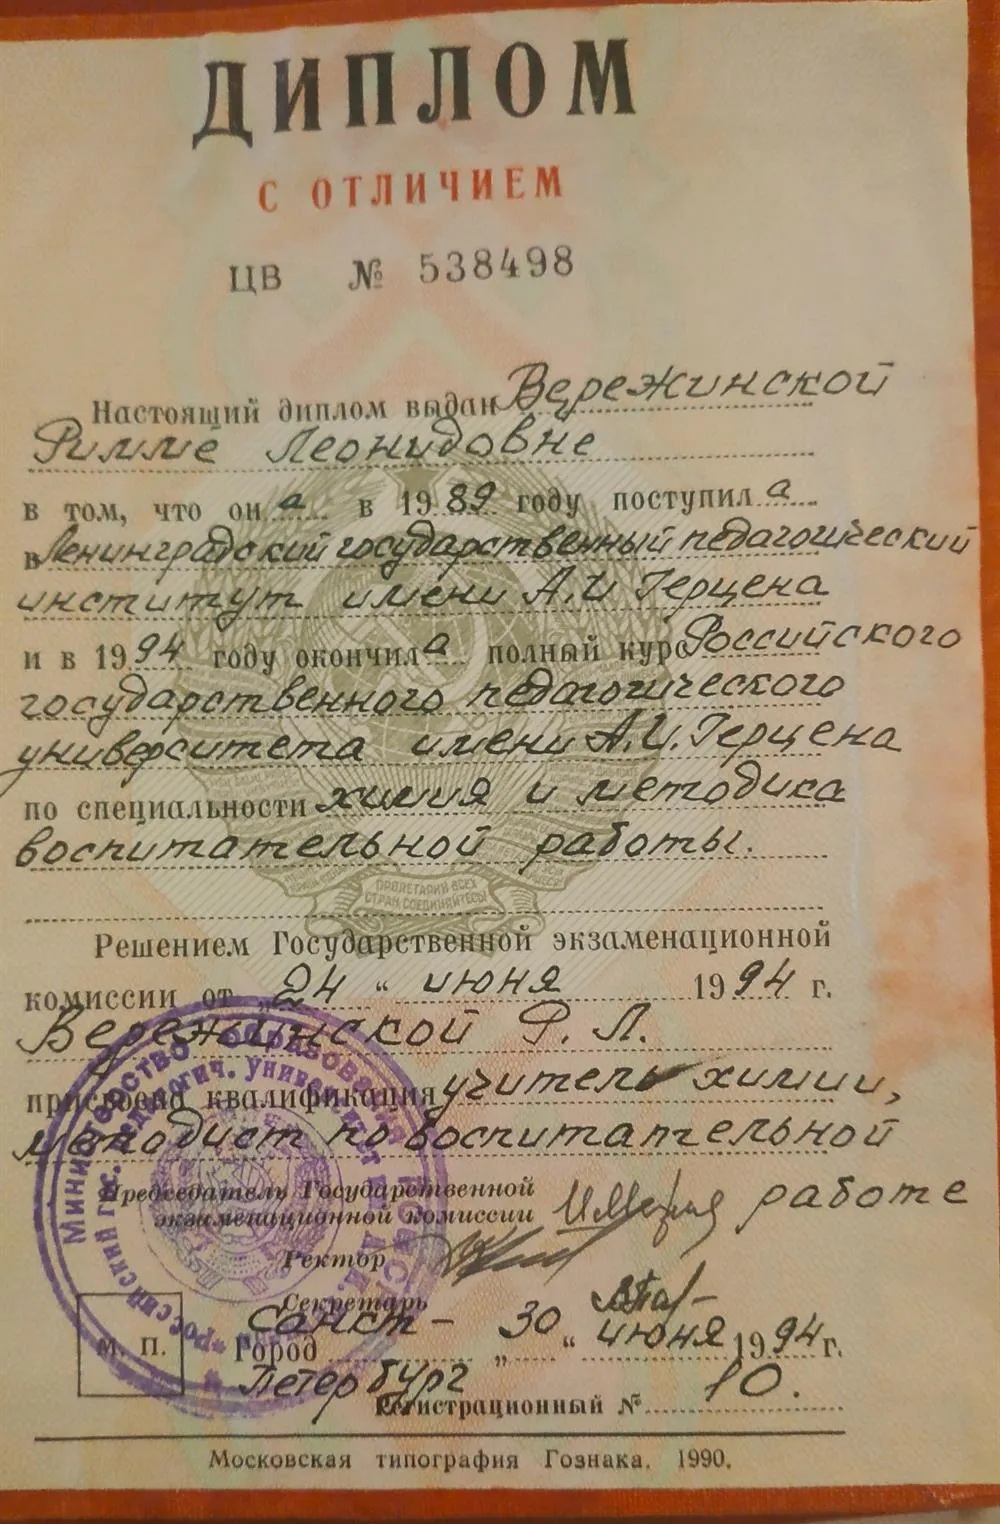 ДИПЛОМ
С ОТЛИЧИЕМ
ЦВ № 538498
Настоящий диплом выдан Вережинской
Римме Леонидовне
в том, что он а в 1989 году поступил а
в Ленинградский государственный педагогический
институт имени А.И Герцена
и в 1994 году окончил а полный курс Российского
государственного педагогического
университета имени А.И. Герцена
по специальности химия и методика
воспитательной работы.
ПРОЛЕТАРИИ ВСЕХ
СТРАН, СОЕДИНЯЙТЕСЬ!
Решением Государственной экзаменационной
комиссии от „24“ июня 1994 г.
Вережинской Р. Л.
присвоена квалификация учитель химии,
методист по воспитательной
работе
Председатель Государственной
экзаменационной комиссии
Ректор
Секретарь
Санкт-
Город „30“ июня 1994 г.
Петербург
М. П.
Регистрационный № 10.
Московская типография Гознака. 1990.